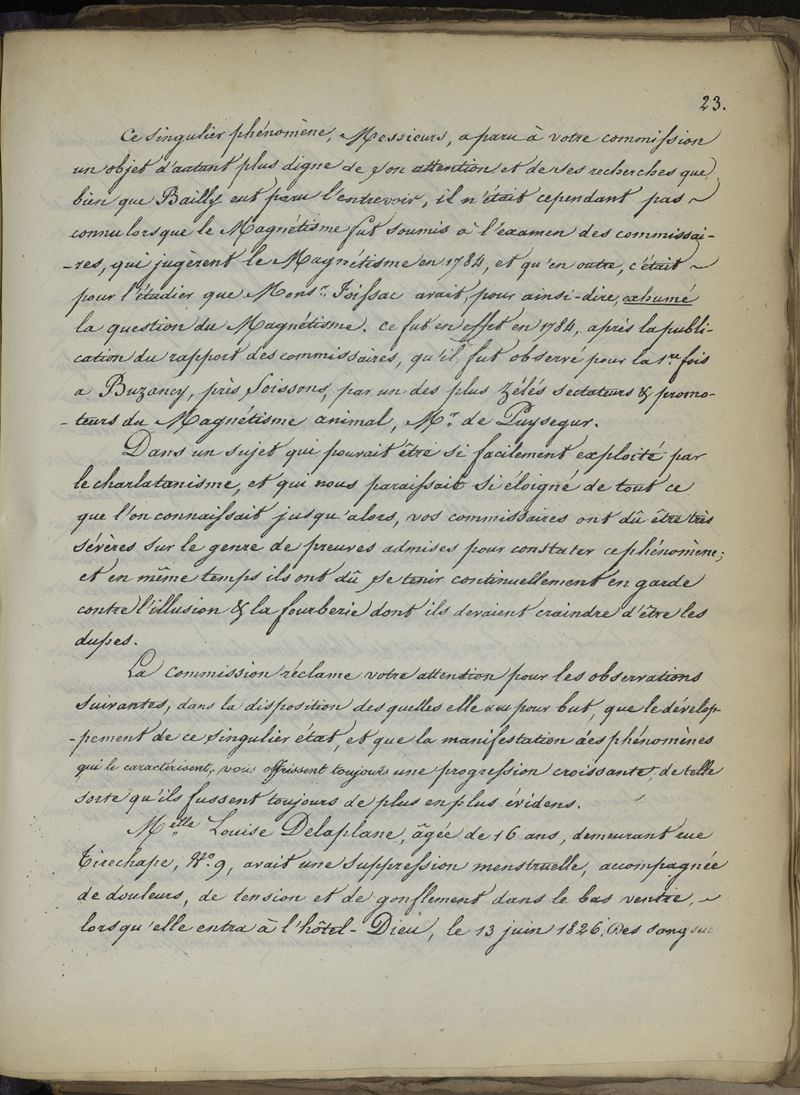 23.
Ce singulier phénomène, Messieurs, a paru à votre commission
un objet d'autant plus digne de son attention et de ses recherches que
bien que Bailly eut paru l'entrevoir, il n'était cependant pas ~
connu lorsque le Magnétisme fut soumis à l'examen des commissai-
-res, qui jugèrent le Magnétisme en 1784, et qu'en outre, c'était ~
pour l'étudier que Monsr. Foissac avait, pour ainsi-dire, exhumé
la question du Magnétisme. Ce fut en effet en 1784, après la publi-
cation du rapport des commissaires, qu'il fut observé pour la 1re fois
a Buzancy, près Soissons, par un des plus zélés sectateurs & promo-
-teurs du Magnétisme animal, Mr. de Puysegur.
Dans un sujet qui pouvait être si facilement exploité par
le charlatanisme, et qui nous paraissait si éloigné de tout ce
que l'on connaissait jusqu'alors, vos commissaires ont dû être très
sévères sur le genre de preuves admises pour constater ce phénomène;
et en même temps ils ont dû se tenir continuellement en garde
contre l'illusion & la fourberie dont ils devaient craindre d'être les
dupes.
La commission réclame votre attention pour les observations
suivantes, dans la disposition des quelles elle a eu pour but, que le dévelop-
-pement de ce singulier état, et que la manifestation des phénomènes
qui le caractérisent, vous offrissent toujours une progression croissante, de telle
sorte qu'ils fussent toujours de plus en plus évidens.
Melle Louise Delaplane, âgée de 16 ans, demeurant rue
Tirechape, No. 9, avait une suppression menstruelle, accompagnée
de douleurs, de tension et de gonflement dans le bas ventre, ~
lorsqu'elle entra à l'hôtel-Dieu, le 13 juin 1826. Des sangsue